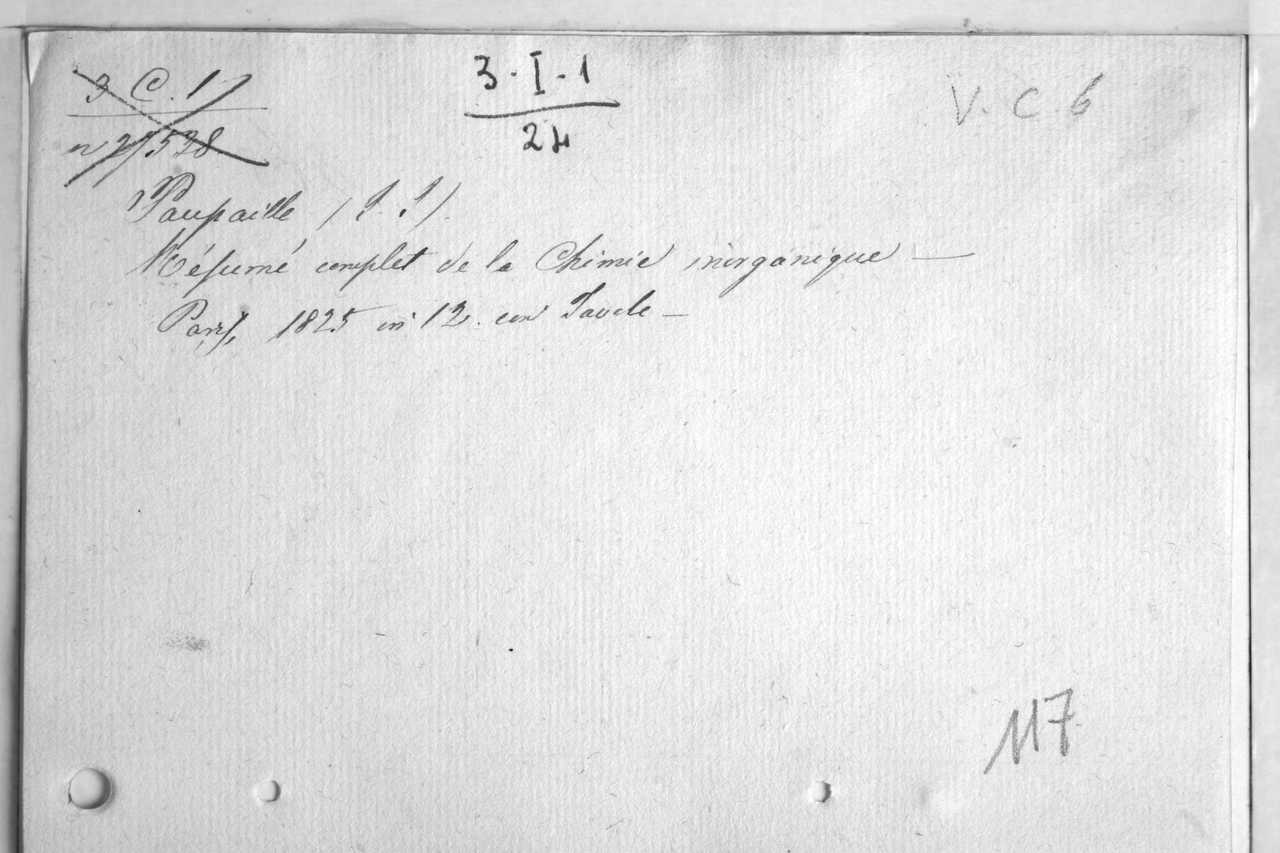 3 C. 1
n 2/538
3 · I · 1
24
V. C. 6
Paupaille (J. J.)
Résumé complet de la Chimie inorganique —
Paris, 1825 in 12. con Tavole —
117